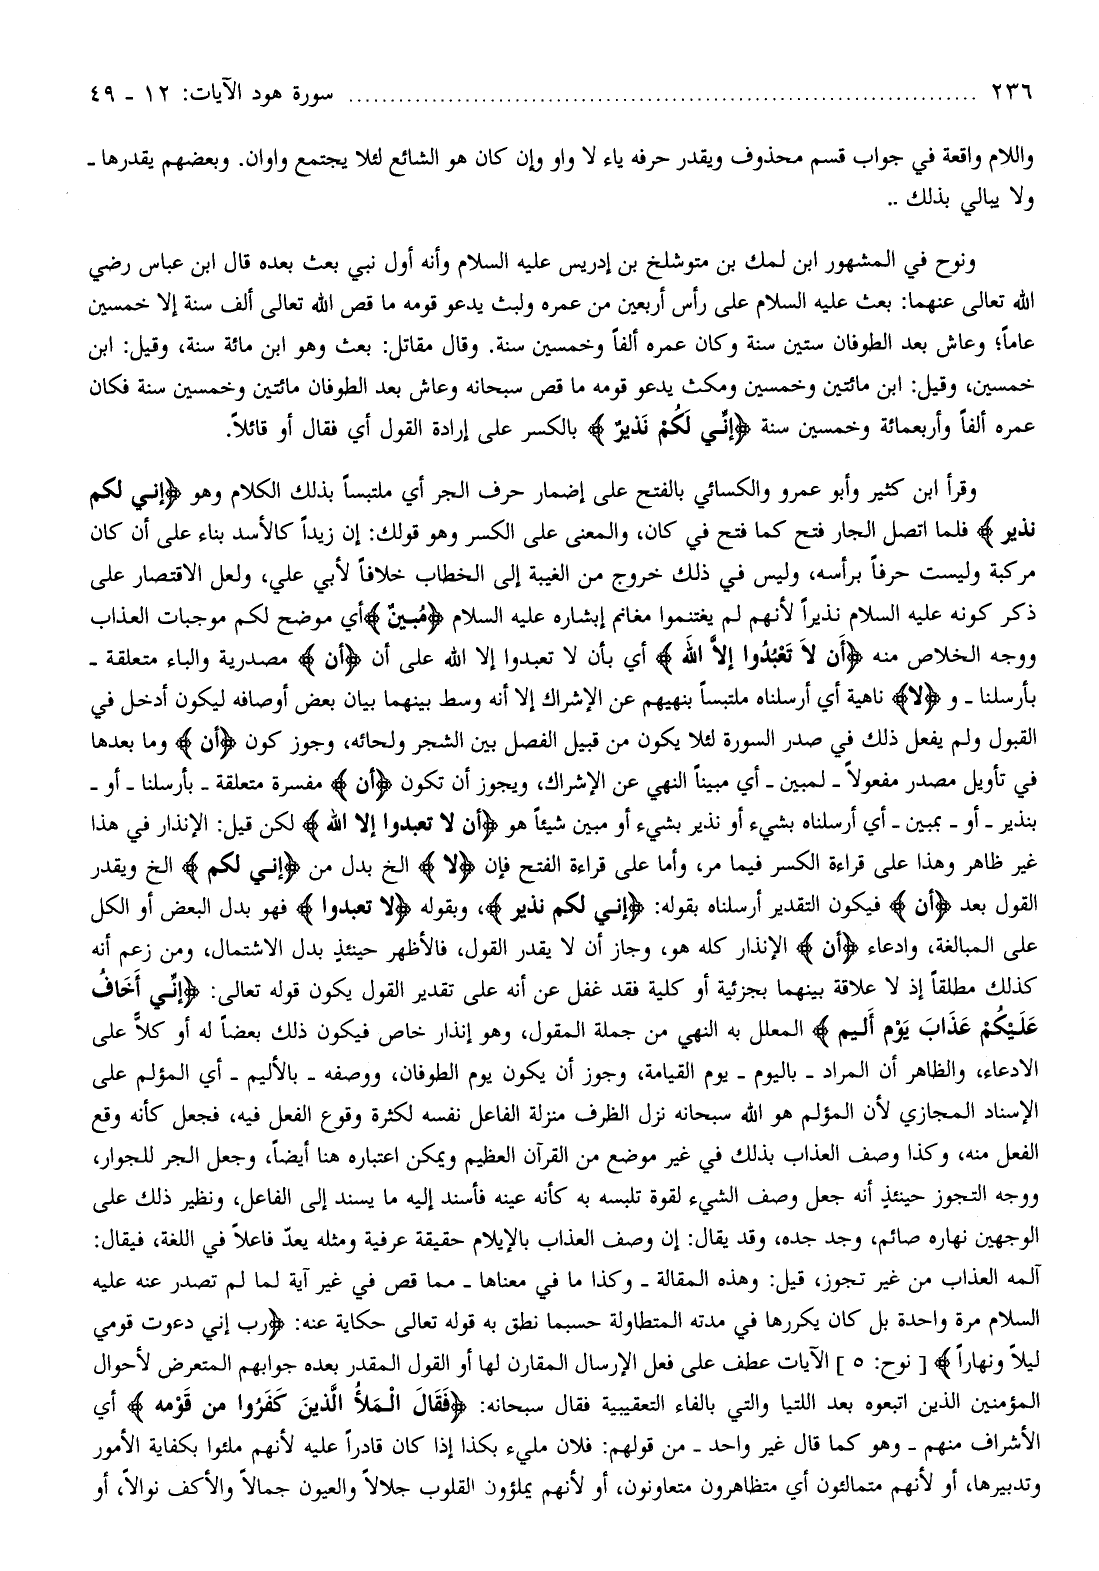 ٢٣٦ ........................................................................ سورة هود الآيات: ١٢ ـ ٤٩
واللام واقعة في جواب قسم محذوف ويقدر حرفه ياء لا واو وإن كان هو الشائع لئلا يجتمع واوان. وبعضهم يقدرها ـ
ولا يبالي بذلك ..
ونوح في المشهور ابن لمك بن متوشلخ بن إدريس عليه السلام وأنه أول نبي بعث بعده قال ابن عباس رضي
الله تعالى عنهما: بعث عليه السلام على رأس أربعين من عمره ولبث يدعو قومه ما قص الله تعالى ألف سنة إلا خمسين
عاماً؛ وعاش بعد الطوفان ستين سنة وكان عمره ألفاً وخمسين سنة. وقال مقاتل: بعث وهو ابن مائة سنة، وقيل: ابن
خمسين، وقيل: ابن مائتين وخمسين ومكث يدعو قومه ما قص سبحانه وعاش بعد الطوفان مائتين وخمسين سنة فكان
عمره ألفاً وأربعمائة وخمسين سنة ﴿إنِّي لَكُمْ نَذيرٌ﴾ بالكسر على إرادة القول أي فقال أو قائلاً.
وقرأ ابن كثير وأبو عمرو والكسائي بالفتح على إضمار حرف الجر أي ملتبساً بذلك الكلام وهو ﴿إني لكم
نذير﴾ فلما اتصل الجار فتح كما فتح في كان، والمعنى على الكسر وهو قولك: إن زيداً كالأسد بناء على أن كان
مركبة وليست حرفاً برأسه، وليس في ذلك خروج من الغيبة إلى الخطاب خلافاً لأبي علي، ولعل الاقتصار على
ذكر كونه عليه السلام نذيراً لأنهم لم يغتنموا مغانم إبشاره عليه السلام ﴿مُبينٌ﴾أي موضح لكم موجبات العذاب
ووجه الخلاص منه ﴿أَن لاَ تَعْبُدُوا إلاَّ اللَّه﴾ أي بأن لا تعبدوا إلا الله على أن ﴿أن﴾ مصدرية والباء متعلقة ـ
بأرسلنا ـ و ﴿لا﴾ ناهية أي أرسلناه ملتبساً بنهيهم عن الإشراك إلا أنه وسط بينهما بيان بعض أوصافه ليكون أدخل في
القبول ولم يفعل ذلك في صدر السورة لئلا يكون من قبيل الفصل بين الشجر ولحائه، وجوز كون ﴿أن﴾ وما بعدها
في تأويل مصدر مفعولاً ـ لمبين ـ أي مبيناً النهي عن الإشراك، ويجوز أن تكون ﴿أن﴾ مفسرة متعلقة ـ بأرسلنا ـ أو ـ
بنذير ـ أو ـ بمبين ـ أي أرسلناه بشيء أو نذير بشيء أو مبين شيئاً هو ﴿أن لا تعبدوا إلا الله﴾ لكن قيل: الإنذار في هذا
غير ظاهر وهذا على قراءة الكسر فيما مر، وأما على قراءة الفتح فإن ﴿لا﴾ الخ بدل من ﴿إني لكم﴾ الخ ويقدر
القول بعد ﴿أن﴾ فيكون التقدير أرسلناه بقوله: ﴿إني لكم نذير﴾، وبقوله ﴿لا تعبدوا﴾ فهو بدل البعض أو الكل
على المبالغة، وادعاء ﴿أن﴾ الإنذار كله هو، وجاز أن لا يقدر القول، فالأظهر حينئذٍ بدل الاشتمال، ومن زعم أنه
كذلك مطلقاً إذ لا علاقة بينهما بجزئية أو كلية فقد غفل عن أنه على تقدير القول يكون قوله تعالى: ﴿إنِّي أَخَافُ
عَلَيْكُمْ عَذَابَ يَوْم أَليم﴾ المعلل به النهي من جملة المقول، وهو إنذار خاص فيكون ذلك بعضاً له أو كلاًّ على
الادعاء، والظاهر أن المراد ـ باليوم ـ يوم القيامة، وجوز أن يكون يوم الطوفان، ووصفه ـ بالأليم ـ أي المؤلم على
الإسناد المجازي لأن المؤلم هو الله سبحانه نزل الظرف منزلة الفاعل نفسه لكثرة وقوع الفعل فيه، فجعل كأنه وقع
الفعل منه، وكذا وصف العذاب بذلك في غير موضع من القرآن العظيم ويمكن اعتباره هنا أيضاً، وجعل الجر للجوار،
ووجه التجوز حينئذٍ أنه جعل وصف الشيء لقوة تلبسه به كأنه عينه فأسند إليه ما يسند إلى الفاعل، ونظير ذلك على
الوجهين نهاره صائم، وجد جده، وقد يقال: إن وصف العذاب بالإيلام حقيقة عرفية ومثله يعدّ فاعلاً في اللغة، فيقال:
آلمه العذاب من غير تجوز، قيل: وهذه المقالة ـ وكذا ما في معناها ـ مما قص في غير آية لما لم تصدر عنه عليه
السلام مرة واحدة بل كان يكررها في مدته المتطاولة حسبما نطق به قوله تعالى حكاية عنه: ﴿رب إني دعوت قومي
ليلاً ونهاراً﴾ [ نوح: ٥ ] الآيات عطف على فعل الإرسال المقارن لها أو القول المقدر بعده جوابهم المتعرض لأحوال
المؤمنين الذين اتبعوه بعد اللتيا والتي بالفاء التعقيبية فقال سبحانه: ﴿فَقَالَ الْمَلأُ الَّذينَ كَفَرُوا من قَوْمه﴾ أي
الأشراف منهم ـ وهو كما قال غير واحد ـ من قولهم: فلان مليء بكذا إذا كان قادراً عليه لأنهم ملئوا بكفاية الأمور
وتدبيرها، أو لأنهم متمالئون أي متظاهرون متعاونون، أو لأنهم يملؤون القلوب جلالاً والعيون جمالاً والأكف نوالاً، أو